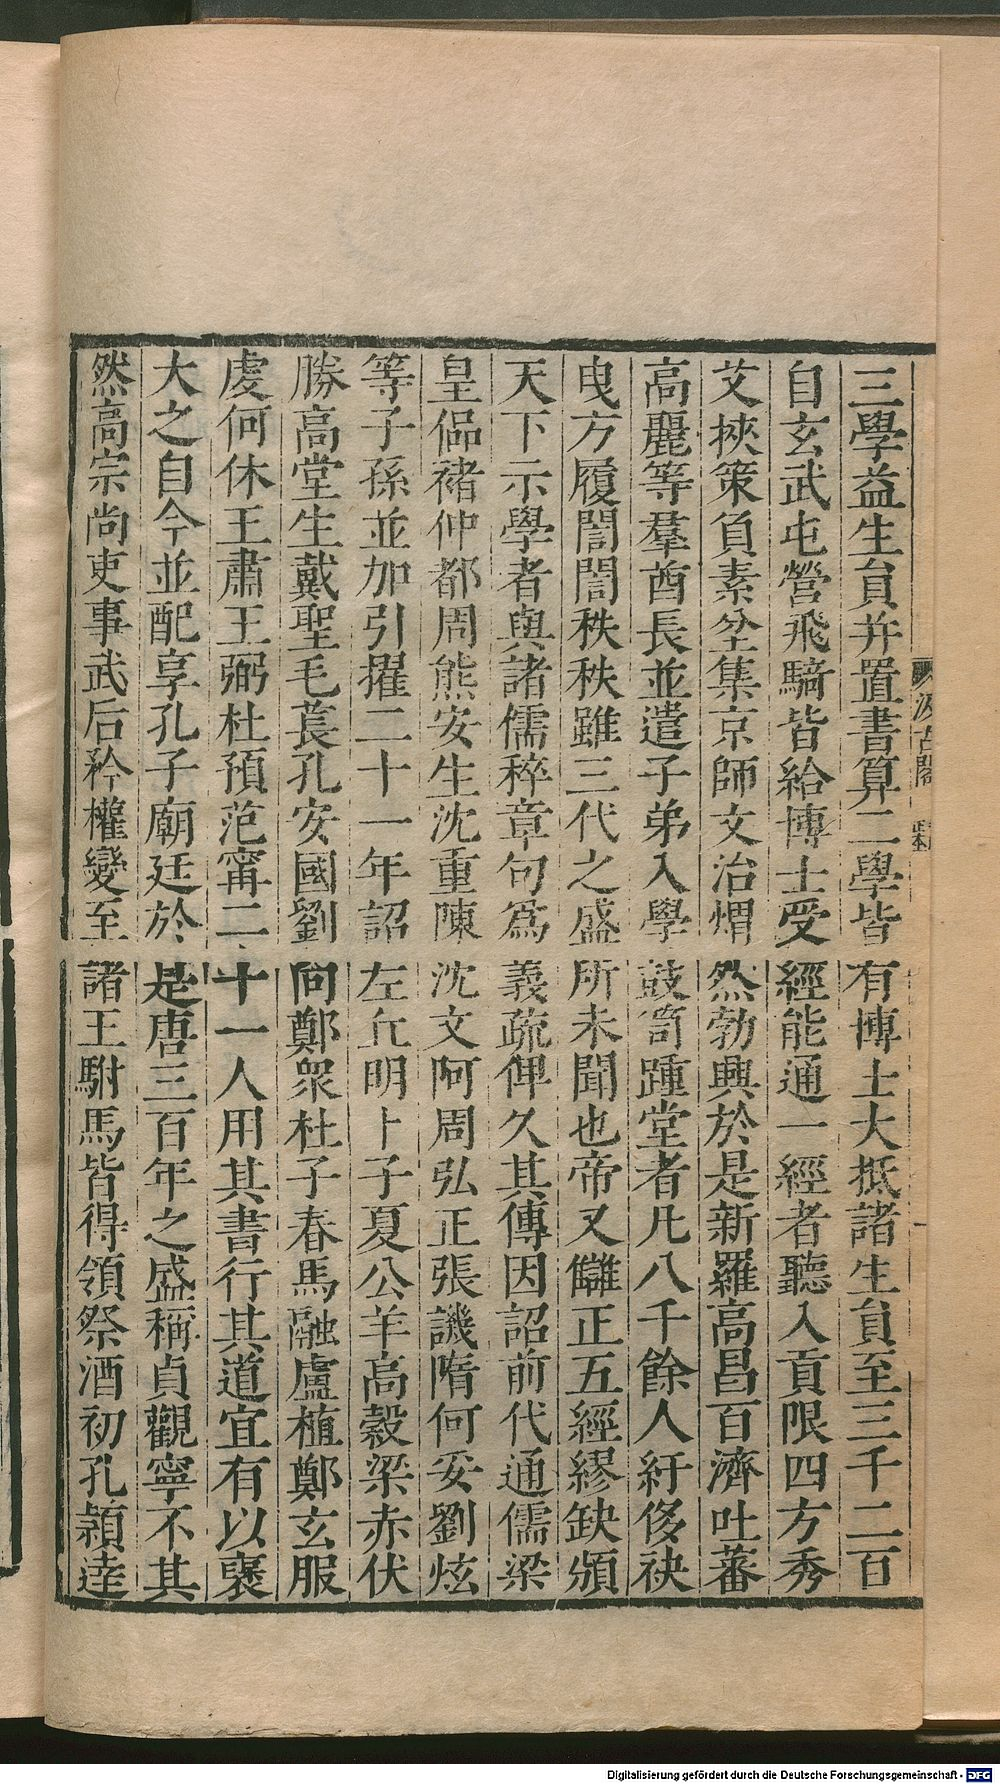 三學益生員并置書算二學皆有博士大抵諸生員至三千二百
自玄武屯營飛騎皆給博士受經能通一經者聽入貢限四方秀
艾挾策負素坌集京師文治煟然勃興於是新羅高昌百濟吐蕃
高麗等羣酋長並遣子弟入學鼓笥踵堂者凡八千餘人紆侈袂
曳方履誾誾秩秩雖三代之盛所未聞也帝又讎正五經繆缺頒
天下示學者與諸儒稡章句爲義疏俾久其傳因詔前代通儒梁
皇偘褚仲都周熊安生沈重陳沈文阿周弘正張譏隋何妥劉炫
等子孫並加引擢二十一年詔左丘明卜子夏公羊高穀梁赤伏
勝高堂生戴聖毛萇孔安國劉向鄭衆杜子春馬融盧植鄭玄服
虔何休王肅王弼杜預范甯二十一人用其書行其道宜有以襃
大之自今並配享孔子廟廷於是唐三百年之盛稱貞觀寧不其
然高宗尚吏事武后矜權變至諸王駙馬皆得領祭酒初孔穎達
汲古閣
正本
Digitalisierung gefördert durch die Deutsche Forschungsgemeinschaft - DFG